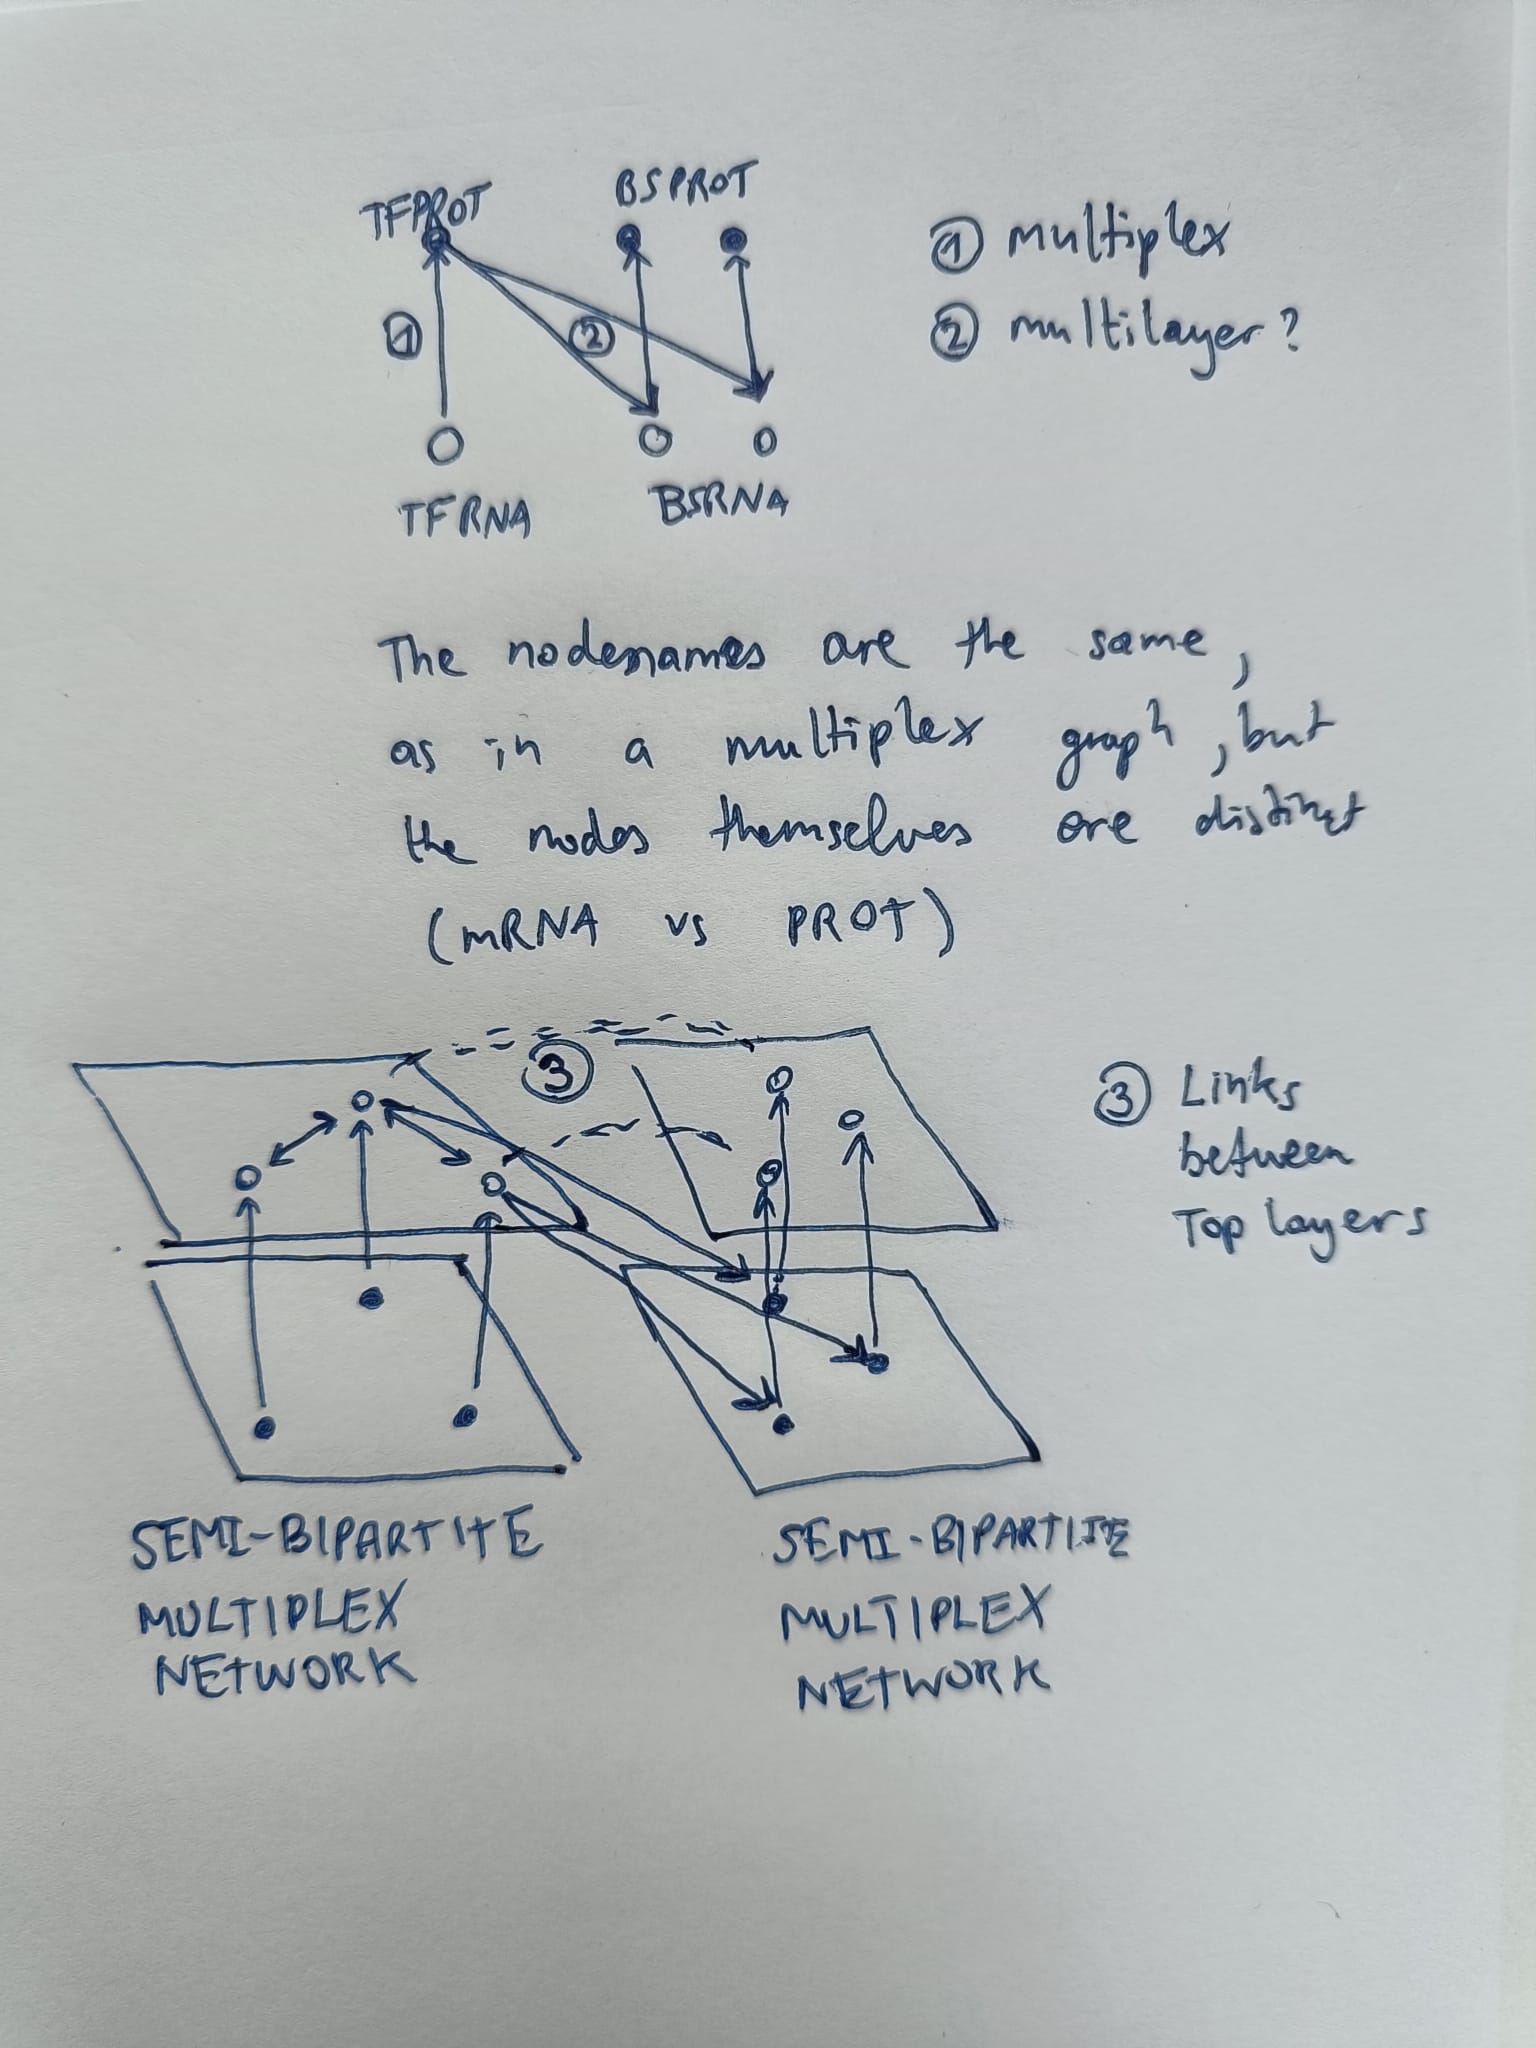 TFPROT
BSPROT
① multiplex
② multilayer?
①
②
TFRNA
BSRNA
The nodenames are the same,
as in a multiplex graph, but
the nodes themselves are distinct
(mRNA vs PROT)
③
③ Links
between
Top layers
SEMI-BIPARTITE
MULTIPLEX
NETWORK
SEMI-BIPARTITE
MULTIPLEX
NETWORK